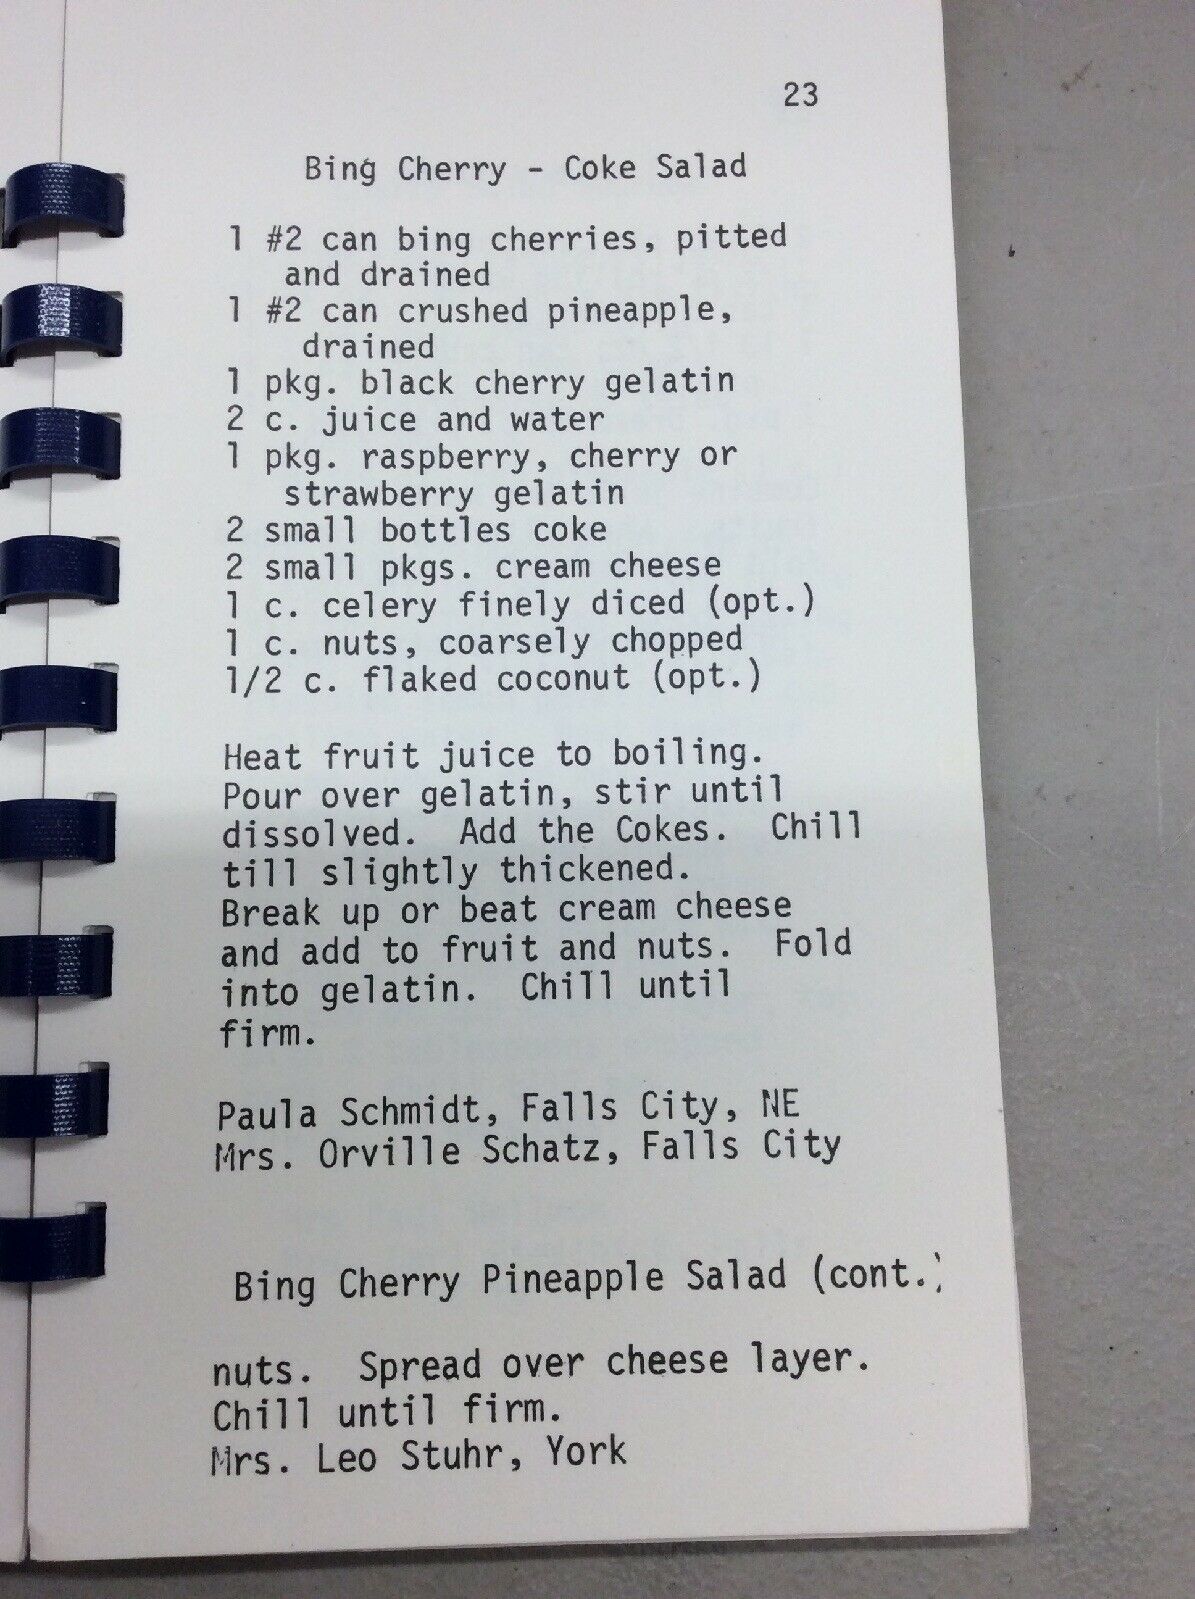 23
Bing Cherry - Coke Salad
1 #2 can bing cherries, pitted
and drained
1 #2 can crushed pineapple,
drained
1 pkg. black cherry gelatin
2 c. juice and water
1 pkg. raspberry, cherry or
strawberry gelatin
2 small bottles coke
2 small pkgs. cream cheese
1 c. celery finely diced (opt.)
1 c. nuts, coarsely chopped
1/2 c. flaked coconut (opt.)
Heat fruit juice to boiling.
Pour over gelatin, stir until
dissolved. Add the Cokes. Chill
till slightly thickened.
Break up or beat cream cheese
and add to fruit and nuts. Fold
into gelatin. Chill until
firm.
Paula Schmidt, Falls City, NE
Mrs. Orville Schatz, Falls City
Bing Cherry Pineapple Salad (cont.)
nuts. Spread over cheese layer.
Chill until firm.
Mrs. Leo Stuhr, York